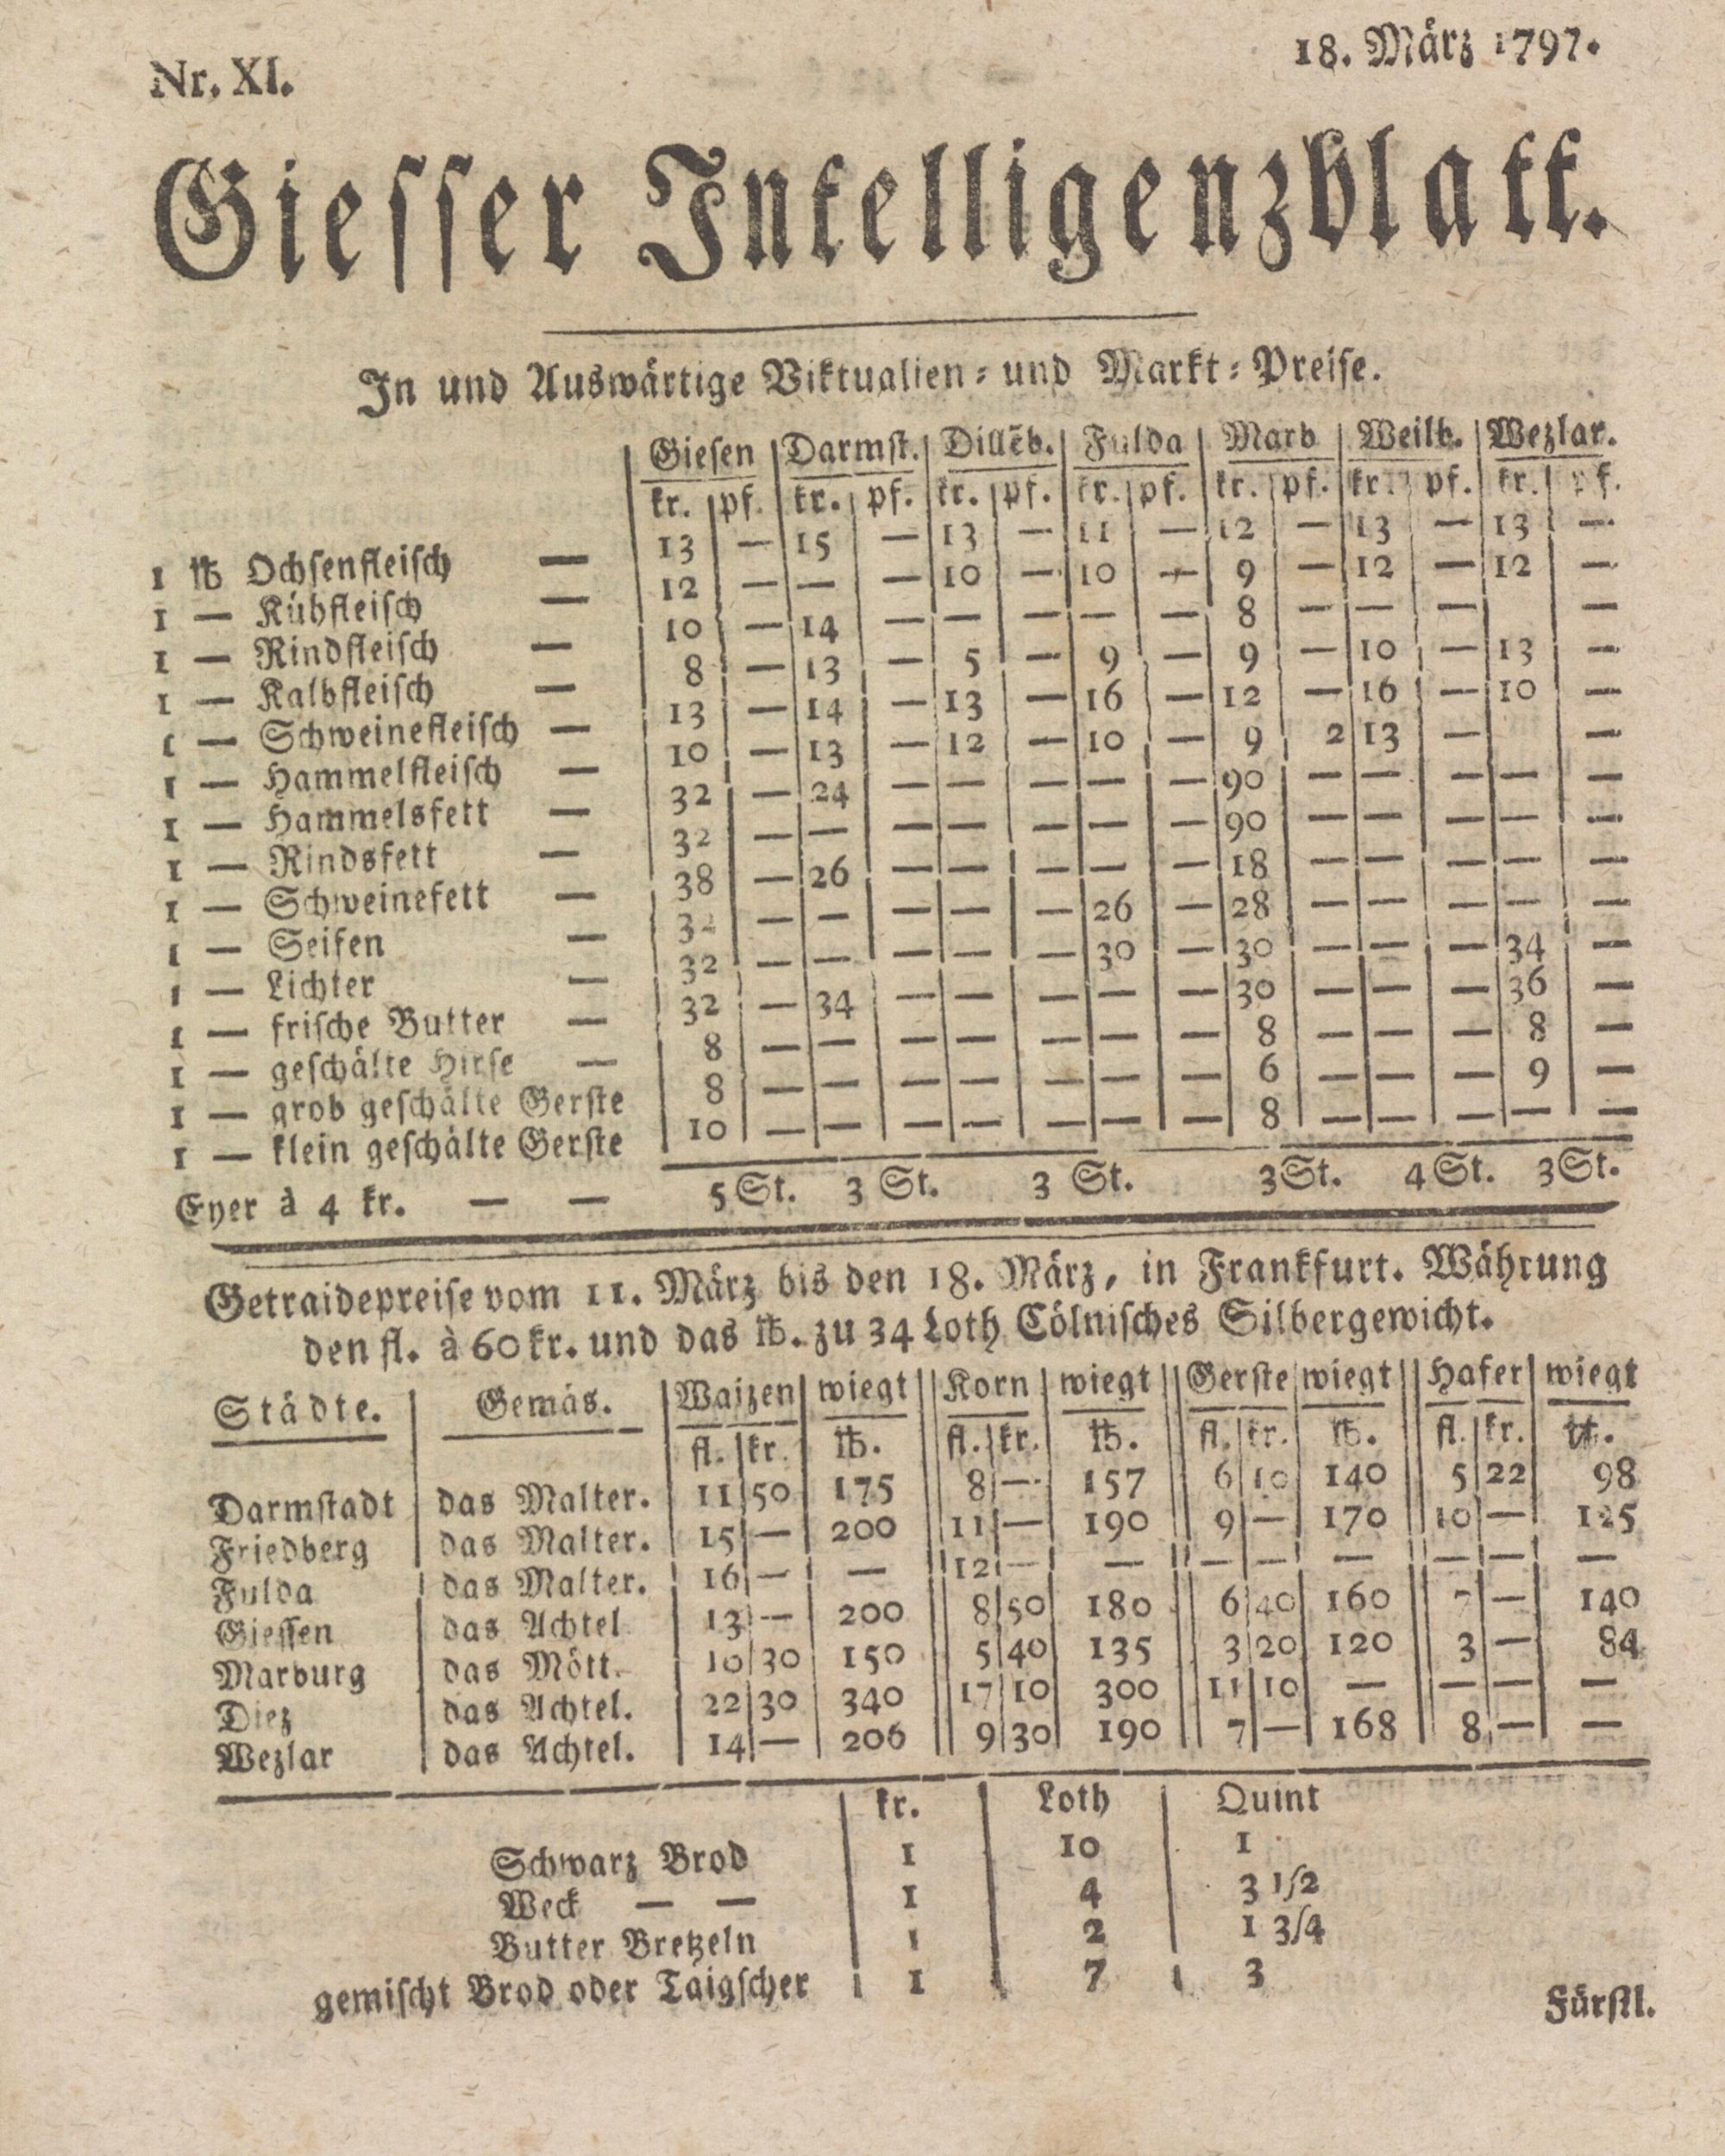 Nr. XI.
18. März 1797.
Giesser Intelligenzblatt.
In und Auswärtige Viktualien- und Markt-Preise.
Giesen Darmst. Dillēb. Fulda Marb Weilb. Wezlar.
kr. pf. kr. pf. kr. pf. kr. pf. kr. pf. kr. pf. kr. pf.
1 ℔ Ochsenfleisch — 13 — 15 — 13 — 11 — 12 — 13 — 13 —
1 — Kühfleisch — 12 — — — 10 — 10 — 9 — 12 — 12 —
1 — Rindfleisch — 10 — 14 — — — — — 8 — — — —
1 — Kalbfleisch — 8 — 13 — 5 — 9 — 9 — 10 — 13 —
1 — Schweinefleisch — 13 — 14 — 13 — 16 — 12 — 16 — 10 —
1 — Hammelfleisch — 10 — 13 — 12 — 10 — 9 2 13 — —
1 — Hammelsfett — 32 — 24 — — — — — 90 — — — — —
1 — Rindsfett — 32 — — — — — — — 90 — — — — —
1 — Schweinefett — 38 — 26 — — — — — 18 — — — — —
1 — Seifen — — — — — — 26 — 28 — — — — —
1 — Lichter — 32 — — — — — 30 — 30 — — — 34 —
1 — frische Butter — 32 — 34 — — — — — 30 — — — 36 —
1 — geschälte Hirse — 8 — — — — — — — 8 — — — 8 —
1 — grob geschälte Gerste 8 — — — — — — — 6 — — — 9 —
1 — klein geschälte Gerste 10 — — — — — — — 8 — — — — —
Eyer à 4 kr. — — 5 St. 3 St. 3 St. 3 St. 4 St. 3 St.
Getraidepreise vom 11. März bis den 18. März, in Frankfurt. Währung
den fl. à 60 kr. und das ℔. zu 34 Loth Cölnisches Silbergewicht.
Städte. Gemäs. Waizen wiegt Korn wiegt Gerste wiegt Hafer wiegt
fl. kr. ℔. fl. kr. ℔. fl. kr. ℔. fl. kr. ℔.
Darmstadt das Malter. 11 50 175 8 — 157 6 10 140 5 22 98
Friedberg das Malter. 15 — 200 11 — 190 9 — 170 10 — 125
Fulda das Malter. 16 — — 12 — — — — — — — —
Giessen das Achtel 13 — 200 8 50 180 6 40 160 7 — 140
Marburg das Mött. 10 30 150 5 40 135 3 20 120 3 — 84
Diez das Achtel. 22 30 340 17 10 300 11 10 — — — —
Wezlar das Achtel. 14 — 206 9 30 190 7 — 168 8 — —
kr. Loth Quint
Schwarz Brod 1 10 1
Weck — — 1 4 3 1/2
Butter Bretzeln 1 2 1 3/4
gemischt Brod oder Taigscher 1 7 3
Fürstl.